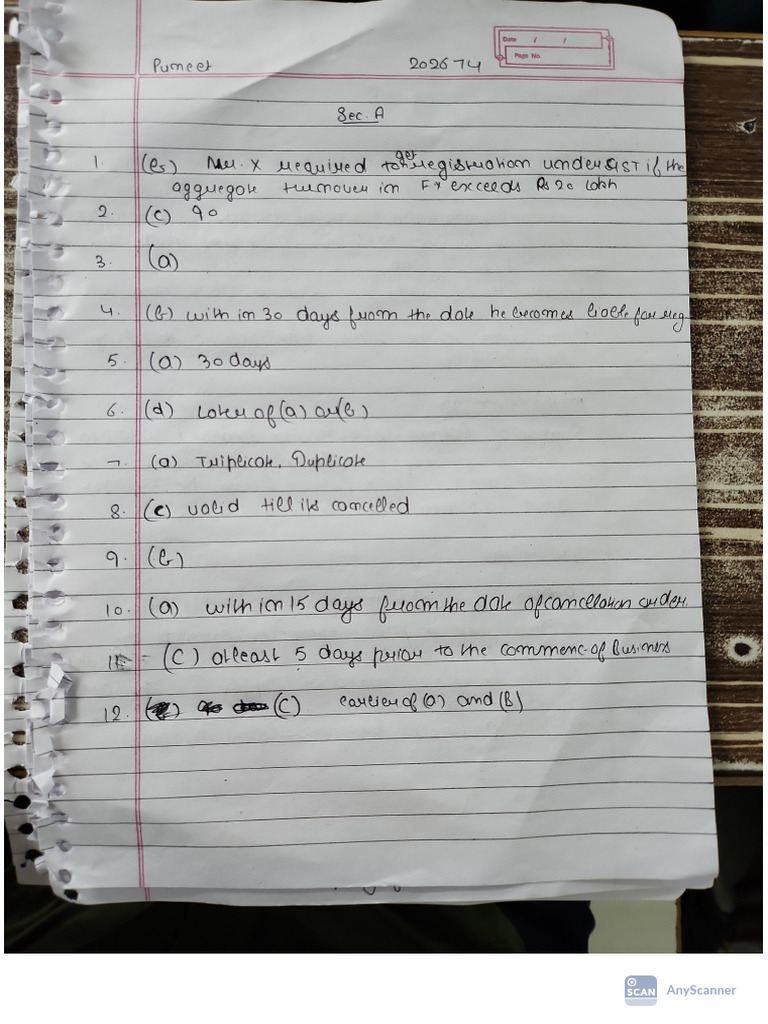 Date / /
Page No.
Puneet 202674
Sec. A
1. (b) Mr. X required to get registration under GST if the
aggregate turnover in FY exceeds Rs 20 lakh
2. (c) 90
3. (a)
4. (b) with in 30 days from the date he becomes liable for reg
5. (a) 30 days
6. (d) Later of (a) or (b)
7. (a) Triplicate, Duplicate
8. (c) valid till its cancelled
9. (b)
10. (a) with in 15 days from the date of cancellation order.
11 - (C) atleast 5 days prior to the commenc. of Business
12. (C) earlier of (a) and (B)
SCAN AnyScanner